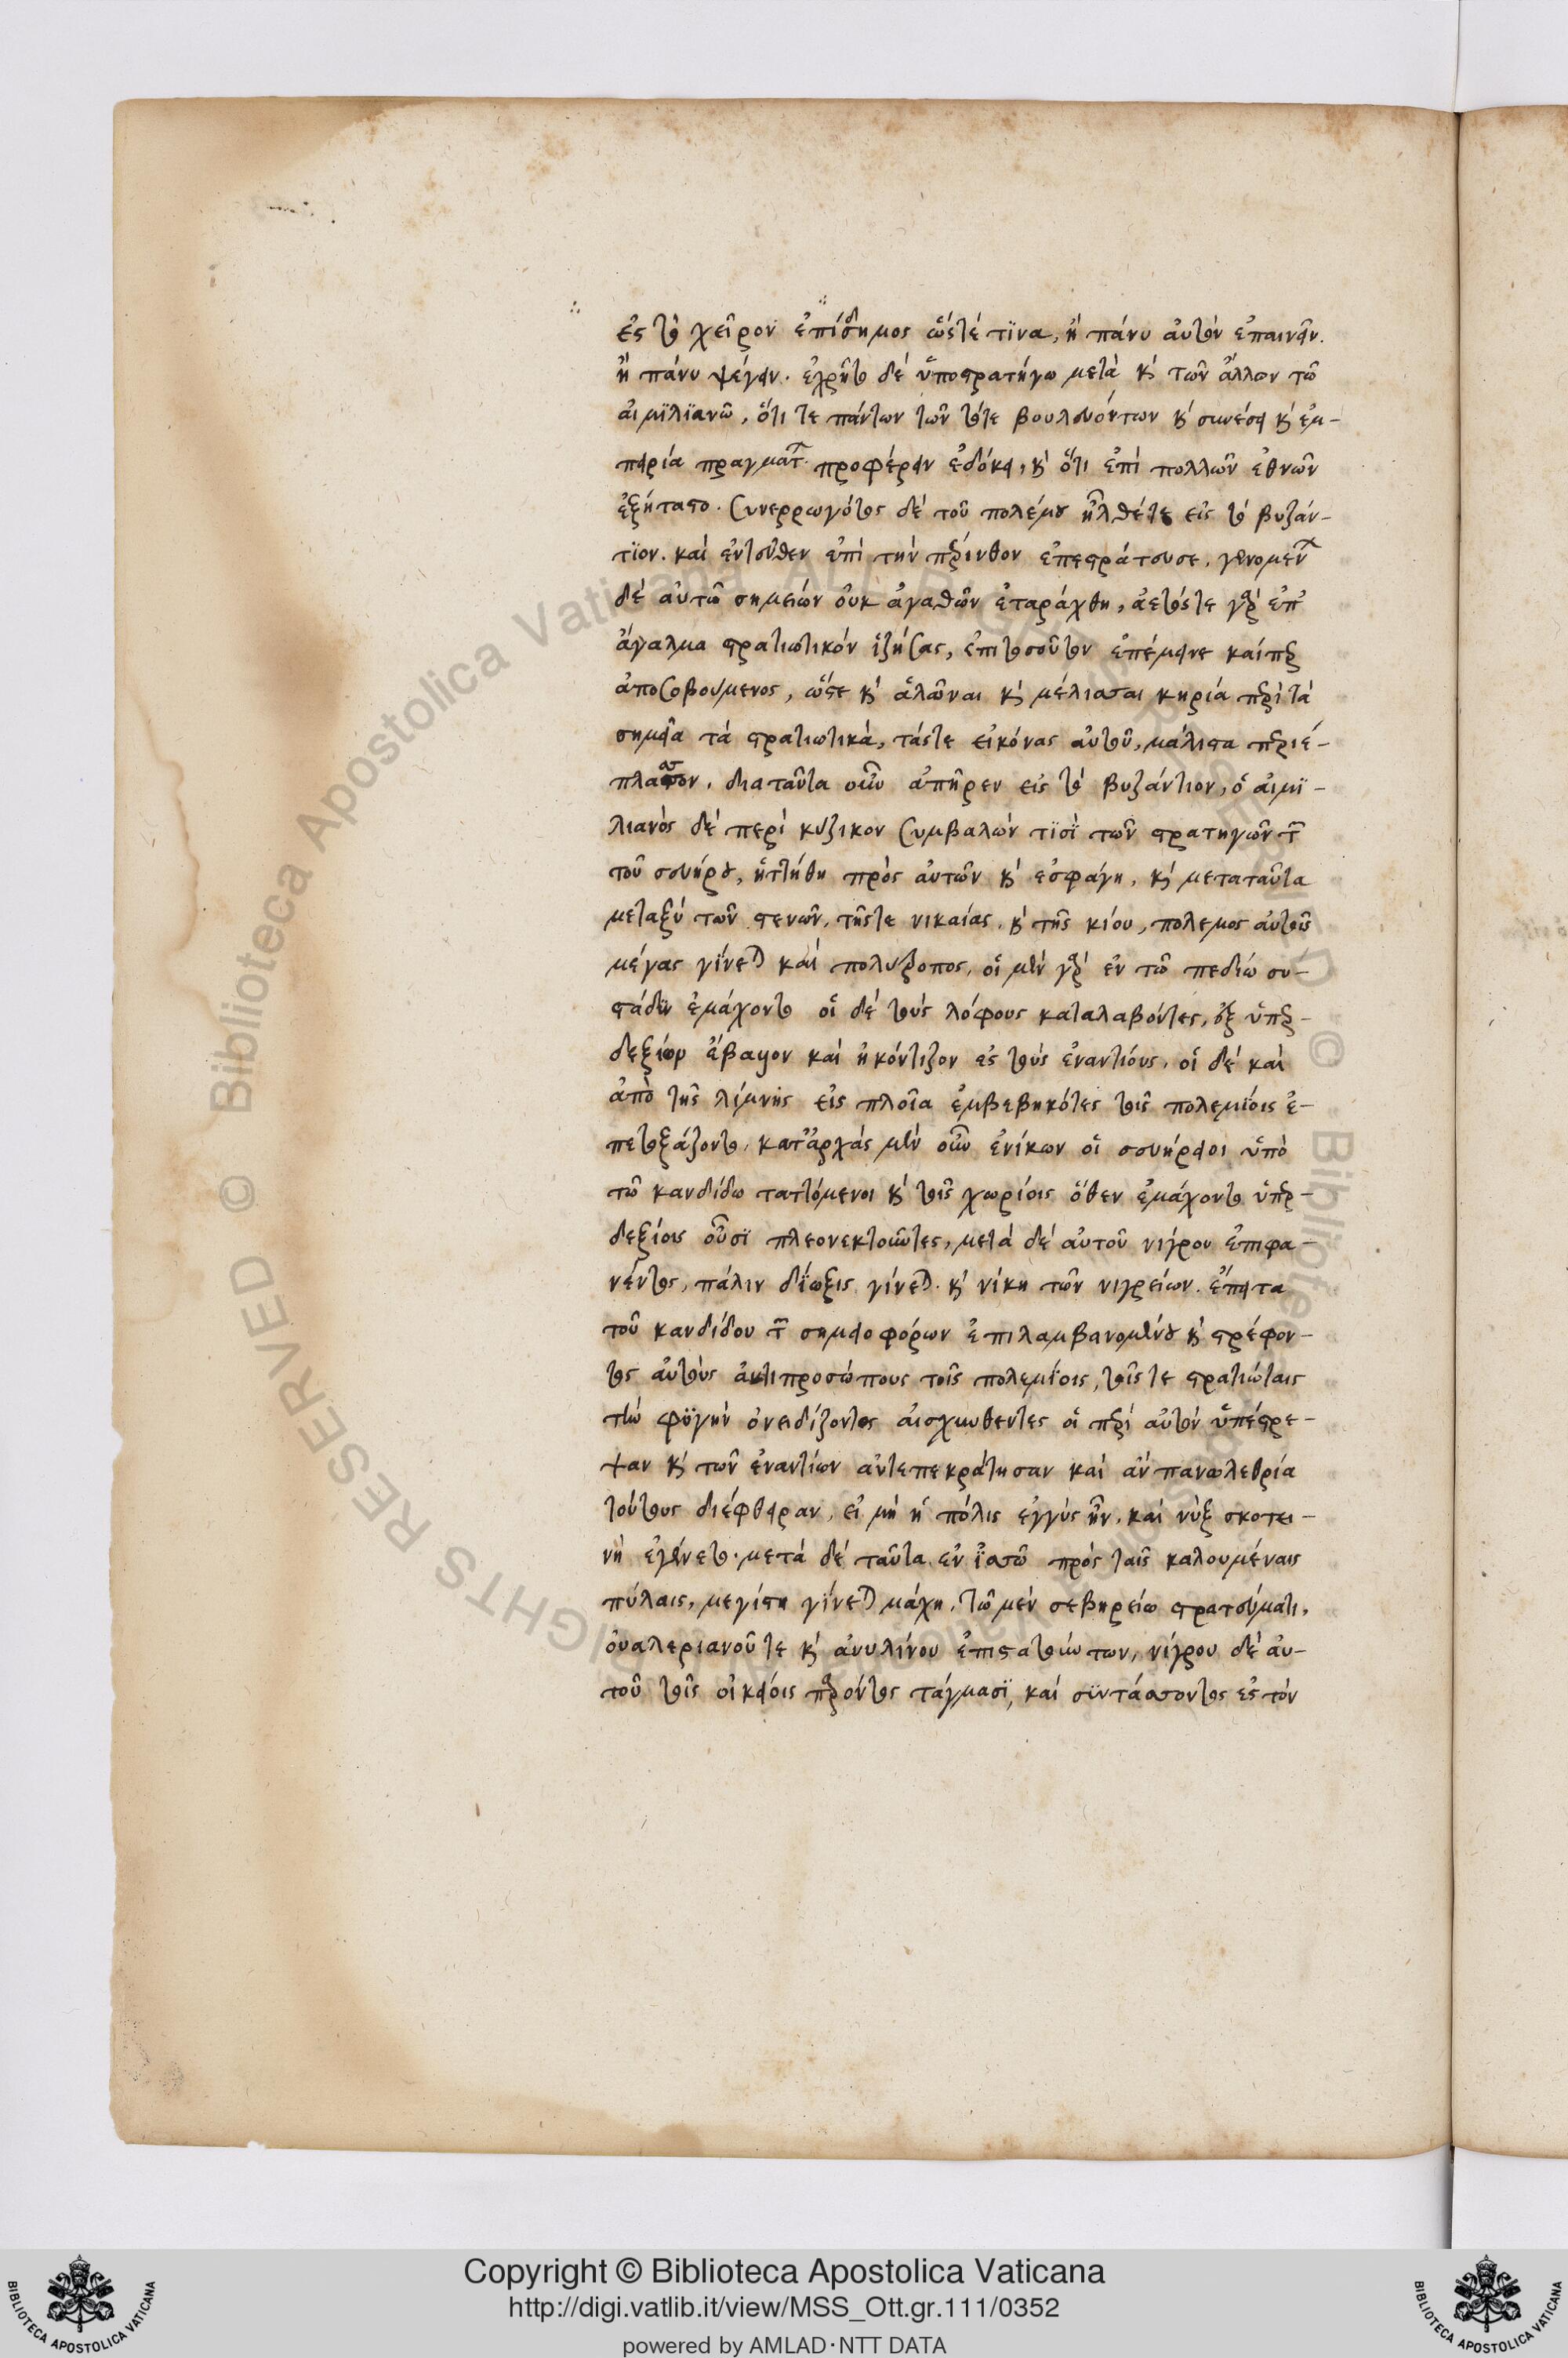 ἐς τὸ χεῖρον ἐπίσημος ὥστέ τϊνα, ἢ πάνυ αὐτὸν ἐπαινεῖν.
ἢ πάνυ ψέγειν. ἐχρῆτο δὲ ὑποστρατήγω μετὰ κ τῶν ἄλλων τῶ
αἰμϊλϊανῶ, ὅτι τε πάντων τῶν τότε βουλευόντων κ συνέσει κ ἐμ-
πειρία πραγματ. προφέρειν ἐδόκει, κ ὅτι ἐπὶ πολλῶν ἐθνῶν
ἐξήταστο. συνερρωγότος δὲ τοῦ πολέμου ἦλθέτε εἰς τὸ βυζάν-
τϊον. καὶ ἐντεῦθεν ἐπὶ τὴν πέρινθον ἐπεστράτευσε. γενομεν
δὲ αὐτῶ σημείων οὐκ ἀγαθῶν ἐταράχθη, ἀετόστε γὰρ ἐπ
ἄγαλμα στρατιωτικὸν ἱζήσας, ἐπιτοσοῦτον ἐπέμεινε καίπερ
ἀποσοβούμενος, ὥστε κ ἁλῶναι κ μέλισσαι κηρία περὶ τὰ
σημεῖα τὰ στρατιωτικά, τάστε εἰκόνας αὐτοῦ, μάλιστα περιέ-
πλασσον, διαταῦτα οὖν ἀπῆρεν εἰς τὸ βυζάντιον, ὁ αἰμϊ-
λιανὸς δὲ περὶ κυζικον συμβαλὼν τϊσὶ τῶν στρατηγῶν τ
τοῦ σευήρου, ἡττήθη πρὸς αὐτῶν κ ἐσφάγη, κ μεταταῦτα
μεταξὺ τῶν στενῶν, τῆστε νικαίας, κ τῆς κίου, πολεμος αὐτοῖς
μέγας γίνεται καὶ πολύτροπος, οἱ μὲν γὰρ ἐν τῶ πεδίω συ-
στάδην ἐμάχοντο οἱ δὲ τοὺς λόφους καταλαβόντες, ἐξ ὑπερ-
δεξίων ἔβαλλον καὶ ἠκόντιζον ἐς τοὺς ἐναντίους, οἱ δὲ καὶ
ἀπὸ τῆς λίμνης εἰς πλοῖα ἐμβεβηκότες τοῖς πολεμίοις ἐ-
πετοξάζοντο, κατἀρχὰς μὲν οὖν ἐνίκων οἱ σευήρειοι ὑπὸ
τῶ κανδίδω ταττόμενοι κ τοῖς χωρίοις ὅθεν ἐμάχοντο ὑπερ-
δεξίοις οὖσϊ πλεονεκτοῦντες, μετὰ δὲ αὐτοῦ νίγρου ἐπιφα-
νέντος, πάλιν δίωξις γίνεται κ νίκη τῶν νιγρείων. ἔπειτα
τοῦ κανδίδου τ σημειοφόρων ἐπιλαμβανομένου κ στρέφον-
τος αὐτοὺς ἀντιπροσώπους τοῖς πολεμίοις, τοῖς τε στρατιώταις
τὴν φϋγὴν ὀνειδίζοντος αἰσχυνθεντες οἱ περὶ αὐτὸν ὑπέστρε-
ψαν κ τῶν ἐναντίων ἀντεπεκράτησαν καὶ ἂν πανωλεθρία
τούτους διέφθειραν, εἰ μὴ ἡ πόλις ἐγγὺς ἦν, καὶ νὺξ σκοτει-
νὴ ἐγένετο. μετὰ δὲ ταῦτα ἐν ἰσσῶ πρὸς ταῖς καλουμέναις
πύλαις, μεγίστη γίνεται μάχη, τῶ μὲν σεβηρείω στρατεύματι,
οὐαλεριανοῦ τε κ ἀνυλίνου ἐπιστατούντων, νίγρου δὲ αὐ-
τοῦ τοῖς οἰκείοις παρόντος τάγμασϊ, καὶ σϋντάσσοντος ἐς τὸν
Copyright © Biblioteca Apostolica Vaticana
http://digi.vatlib.it/view/MSS_Ott.gr.111/0352
powered by AMLAD·NTT DATA